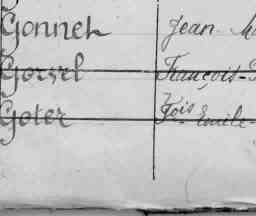 Gonnet Jean
Gorrel François-
Goter Fois Emile-